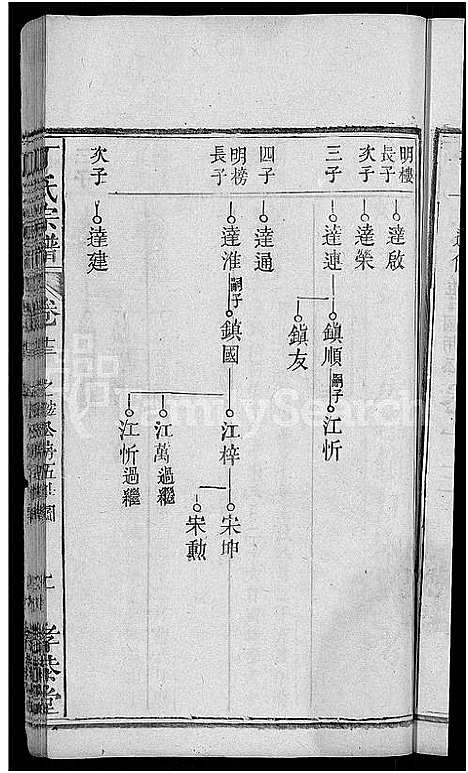 明樓
長子 達啟
次子 達榮
三子 達連 鎮順 嗣子 江忻
鎮友
四子 達通
明榜
長子 達淮 嗣子 鎮國 江梓 宋坤
宋勳
江萬過繼
江忻過繼
次子 達建
丁氏宗譜
卷
五世圖
孝恭堂
FamilySearch